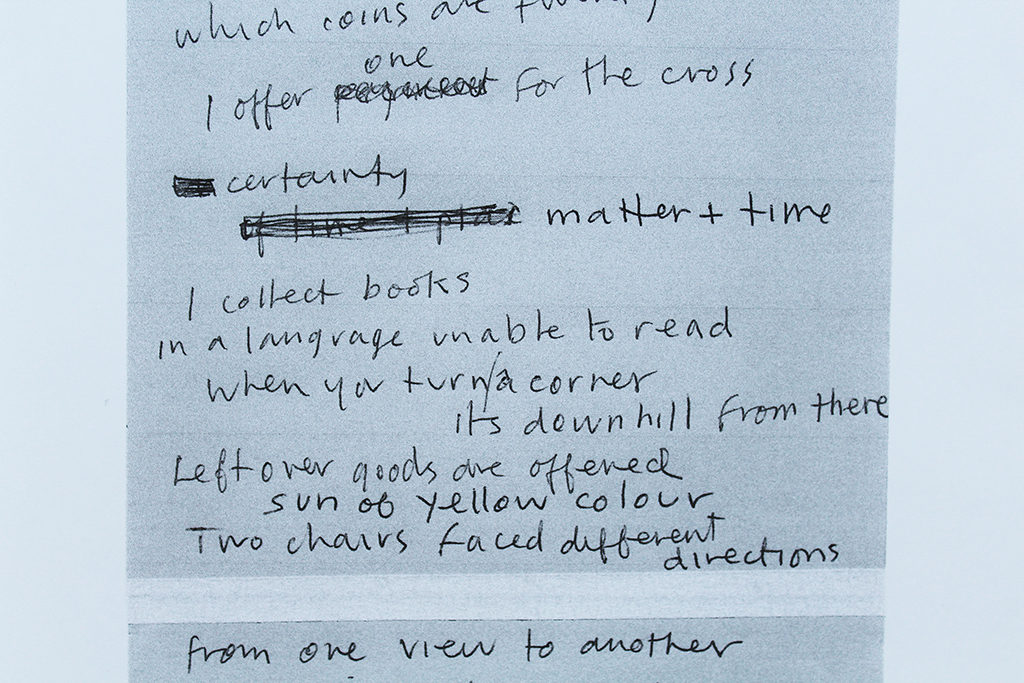 which coins are
one
I offer for the cross
certainty
matter + time
I collect books
in a language unable to read
when you turn/a corner
its downhill from there
Leftover goods are offered
sun of yellow colour
Two chairs faced different
directions
from one view to another